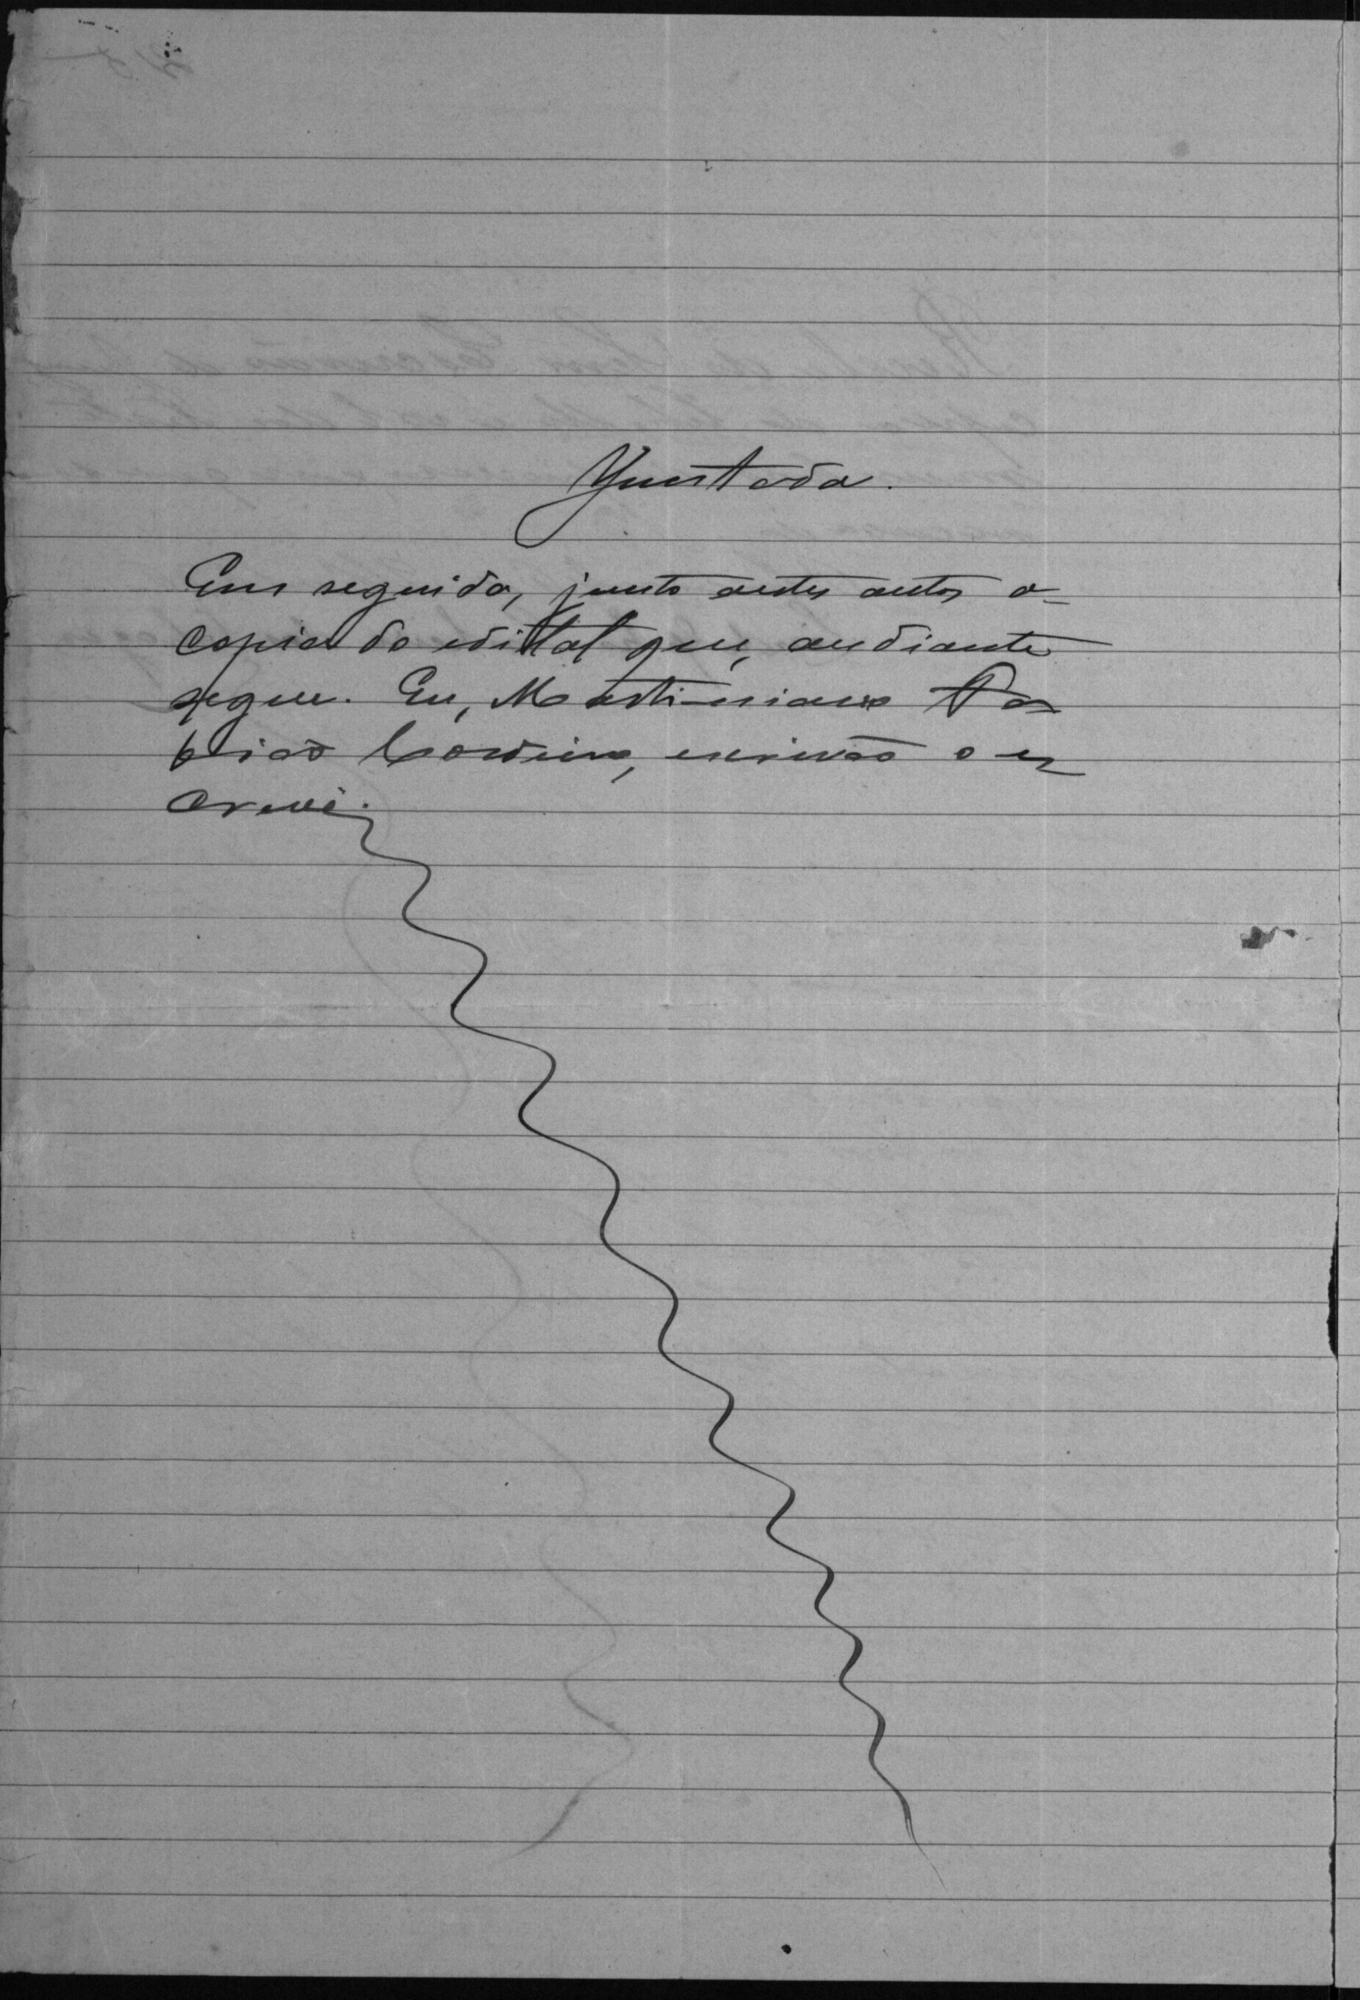 Juntada.
Em seguida, junto aestes autos a
copia do edital que, aodiante
segue. Eu, Martiniano
Cordeiro, escrivão o es
crevi.